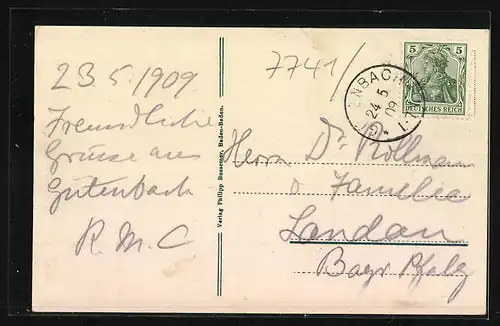 23.5.1909
Freundliche
Grüsse aus
Gütenbach
R. M. C
Verlag Philipp Bussemer, Baden-Baden.
7741/
5 5
DEUTSCHES REICH
24 5
09
Herrn Dr Rollmann
u Familie
Landau
Bayr Pfalz